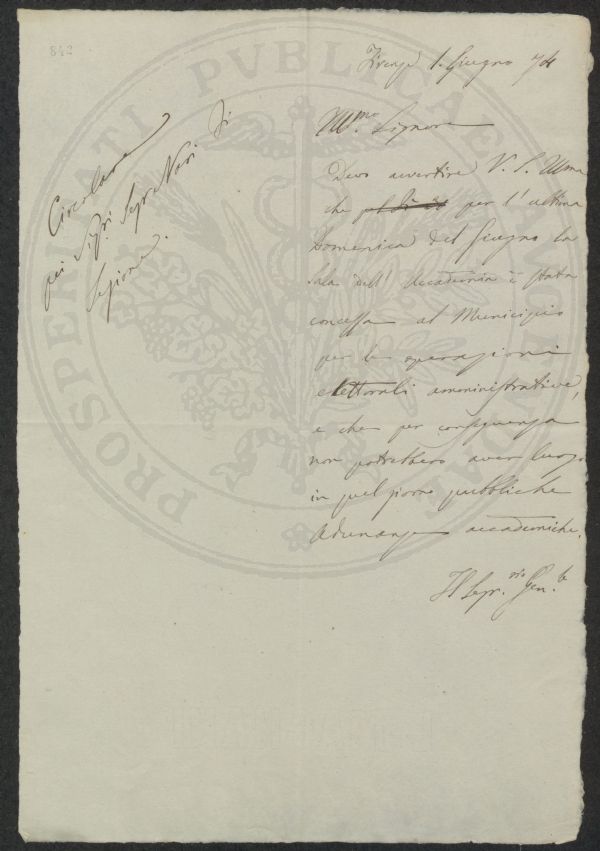 842
Firenze 1. Giugno 74
Ill.mo Signore
Circolare
pei Sigri. Segretari di
Sezione.
Devo avvertire V. S. Illma
che per l'ultima
Domenica del Giugno la
Sala dell'Accademia è stata
concessa al Municipio
per le operazioni
elettorali amministrative,
e che per conseguenza
non potrebbero aver luogo
in quel giorno pubbliche
Adunanze accademiche.
Il Segr.rio Gen.le
PROSPERITATI PUBLICAE AUGENDAE